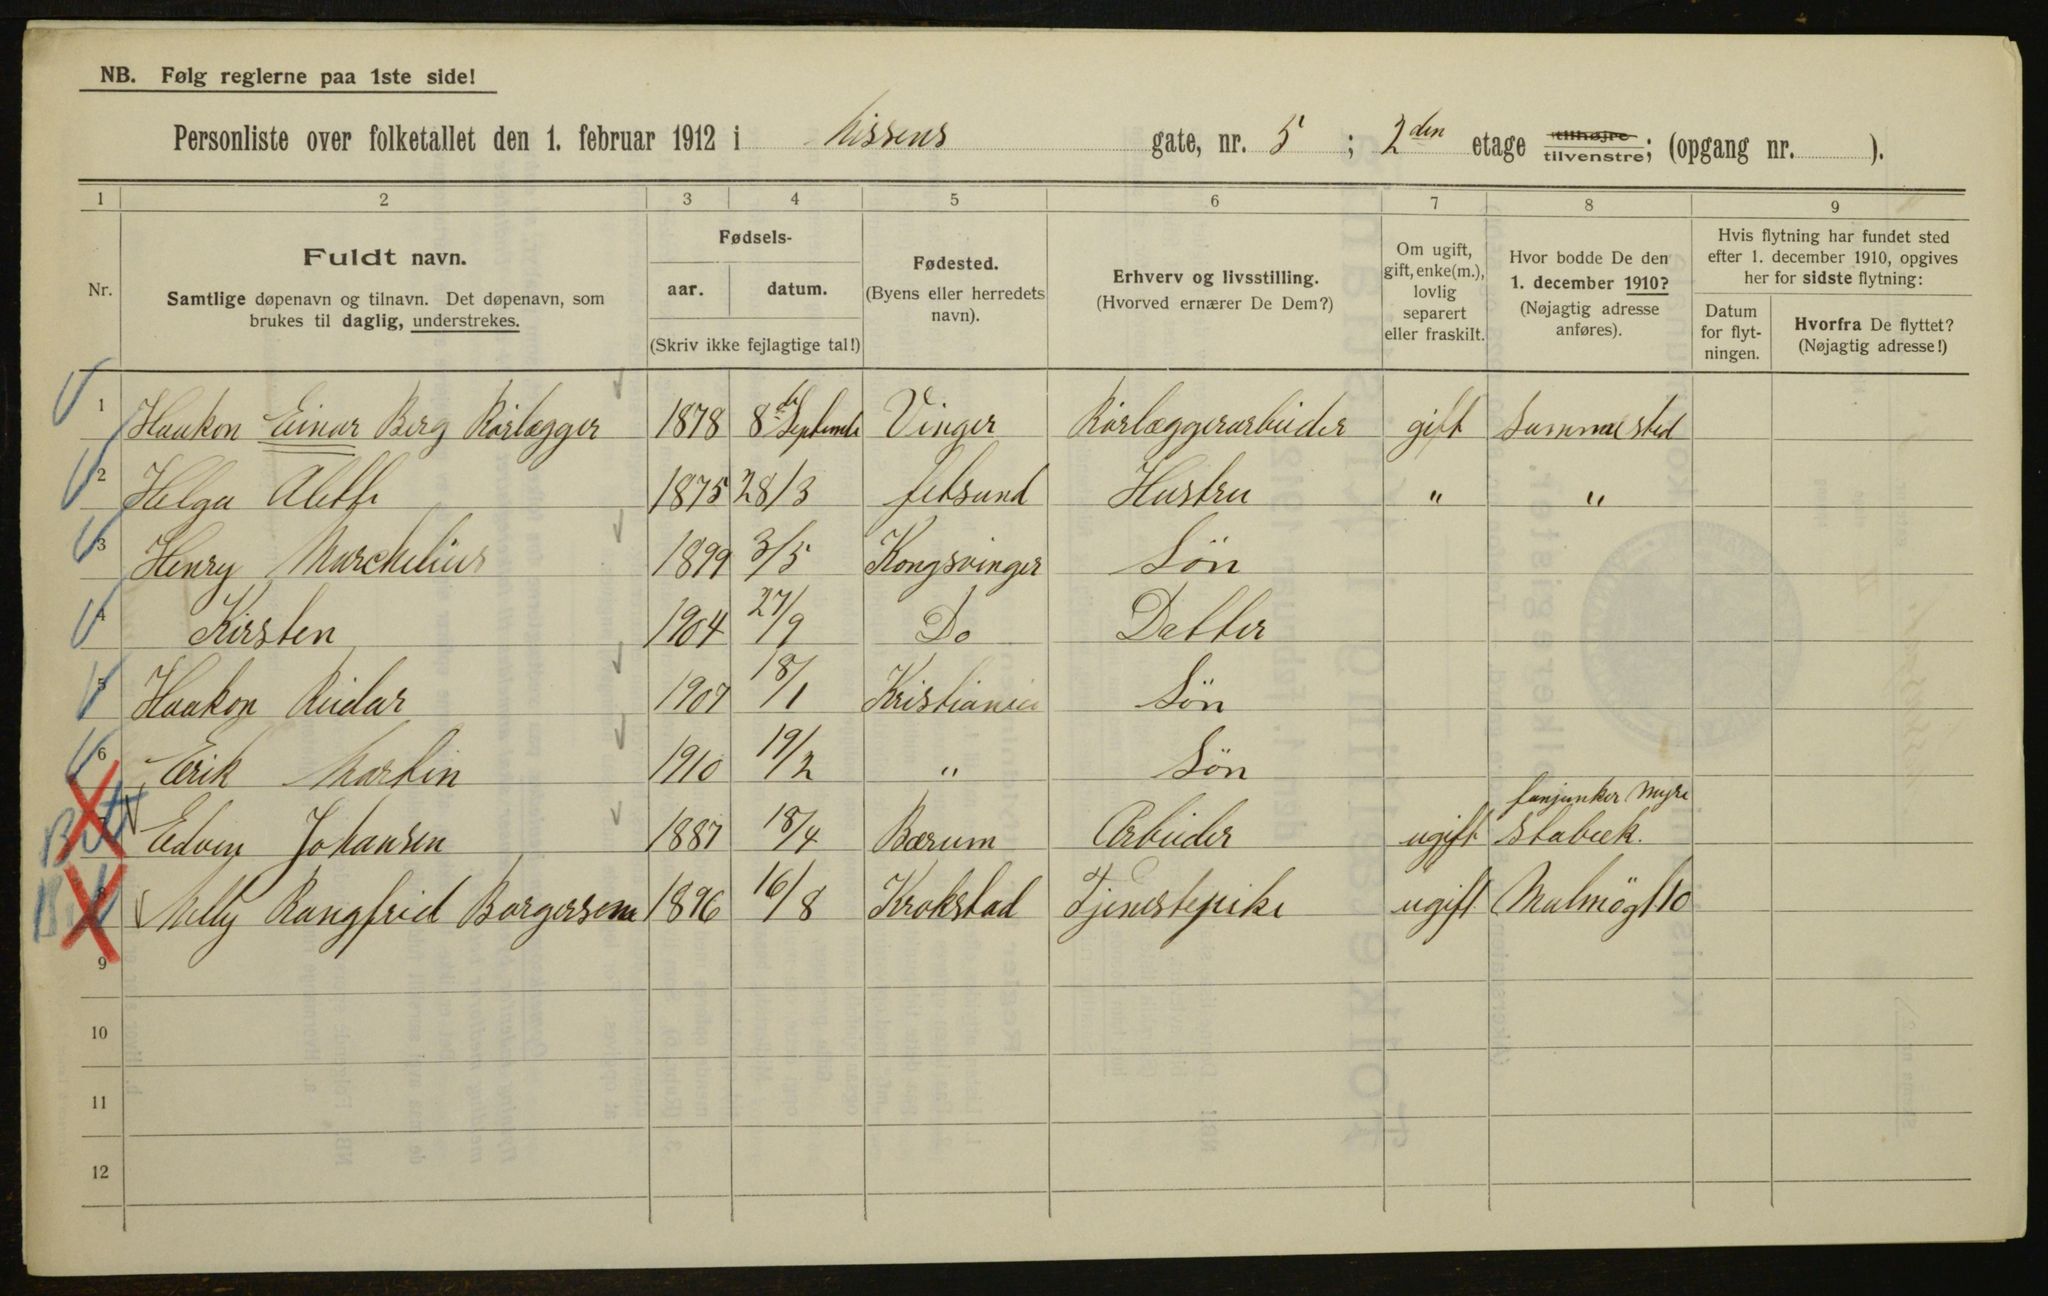 NB. Følg reglerne paa 1ste side!
Personliste over folketallet den 1. februar 1912 i Nissens gate, nr. 5 ; 2den etage tilhøjre tilvenstre; (opgang nr. ).
1 2 3 4 5 6 7 8 9
Nr.
Fuldt navn.
Samtlige døpenavn og tilnavn. Det døpenavn, som
brukes til daglig, understrekes.
Fødsels-
aar. datum.
(Skriv ikke fejlagtige tal!)
Fødested.
(Byens eller herredets
navn).
Erhverv og livsstilling.
(Hvorved ernærer De Dem?)
Om ugift,
gift, enke(m.),
lovlig
separert
eller fraskilt.
Hvor bodde De den
1. december 1910?
(Nøjagtig adresse
anføres).
Hvis flytning har fundet sted
efter 1. december 1910, opgives
her for sidste flytning:
Datum
for flyt-
ningen.
Hvorfra De flyttet?
(Nøjagtig adresse!)
1 Haakon Einar Berg Rørlægger 1878 8de September Vinger Rørlæggerarbeider gift Samme sted
2 Helga Alette 1875 28/3 Fetsund Hustru " "
3 Henry Marchelius 1899 3/5 Kongsvinger Søn
4 Kirsten 1904 27/9 Do Datter
5 Haakon Reidar 1907 18/1 Kristiania Søn
6 Erik Martin 1910 19/2 " Søn
7 Edvin Johansen 1887 18/4 Bærum Arbeider ugift fanjunker Myre Stabæk.
8 Nelly Rangfrid Borgersen 1896 16/8 Krokstad Tjenestepike ugift Malmögt 10
9
10
11
12